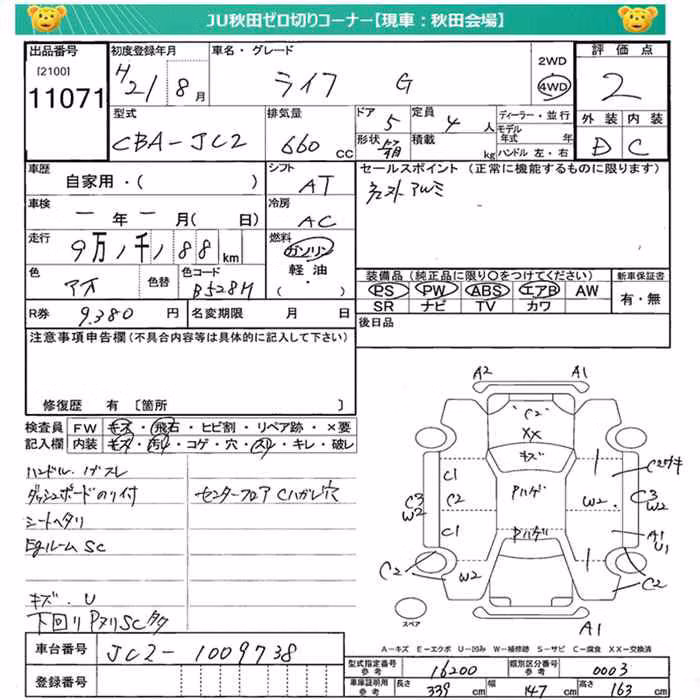 JU秋田ゼロ切りコーナー【現車：秋田会場】
出品番号 初度登録年月 車名・グレード 2WD 評価点
[2100] 11071 H21/8月 ライフ G 4WD 2
型式 排気量 ドア 定員 ディーラー・並行 外装 内装
CBA-JC2 660cc 5 4人 モデル年式 年 D C
形状 箱 積載 kg ハンドル 左・右
車歴 シフト セールスポイント（正常に機能するものに限ります）
自家用・( ) AT
車検 冷房
ー年ー月(日) AC
走行 燃料
9万1千188km ガソリン
軽油
・
( )
色 色替 色コード 装備品（純正品に限り○をつけてください） 新車保証書
アオ B528M PS PW ABS エアB AW 有・無
SR ナビ TV カワ
R券 9,380円 名変期限 月 日 後日品
注意事項申告欄（不具合内容等は具体的に記入して下さい）
修復歴 有 〔箇所 〕
検査員 FW キズ・飛石・ヒビ割・リペア跡・×要
記入欄 内装 キズ・汚れ・コゲ・穴・スリ・キレ・破レ
ハンドル、
ダッシュボードのり付 センターフロア Cハガレ穴
シートヘタリ
Egルーム SC
キズ．U
下回り Pヌリ SC
A2 A1
C2
XX
キズ
C1 C2ヅキ
Pハゲ
C3 W2 C2 W2 C3 W2
C1 Pハゲ A1 U1
C2 W2 C2
スペア A1
A－キズ E－エクボ U－凹み W－補修跡 S－サビ C－腐食 XX－交換済
車台番号 JC2-1009738
登録番号
型式指定番号 参考 16200 類別区分番号 参考 0003
車庫証明用 参考 長さ 339cm 幅 147cm 高さ 163cm